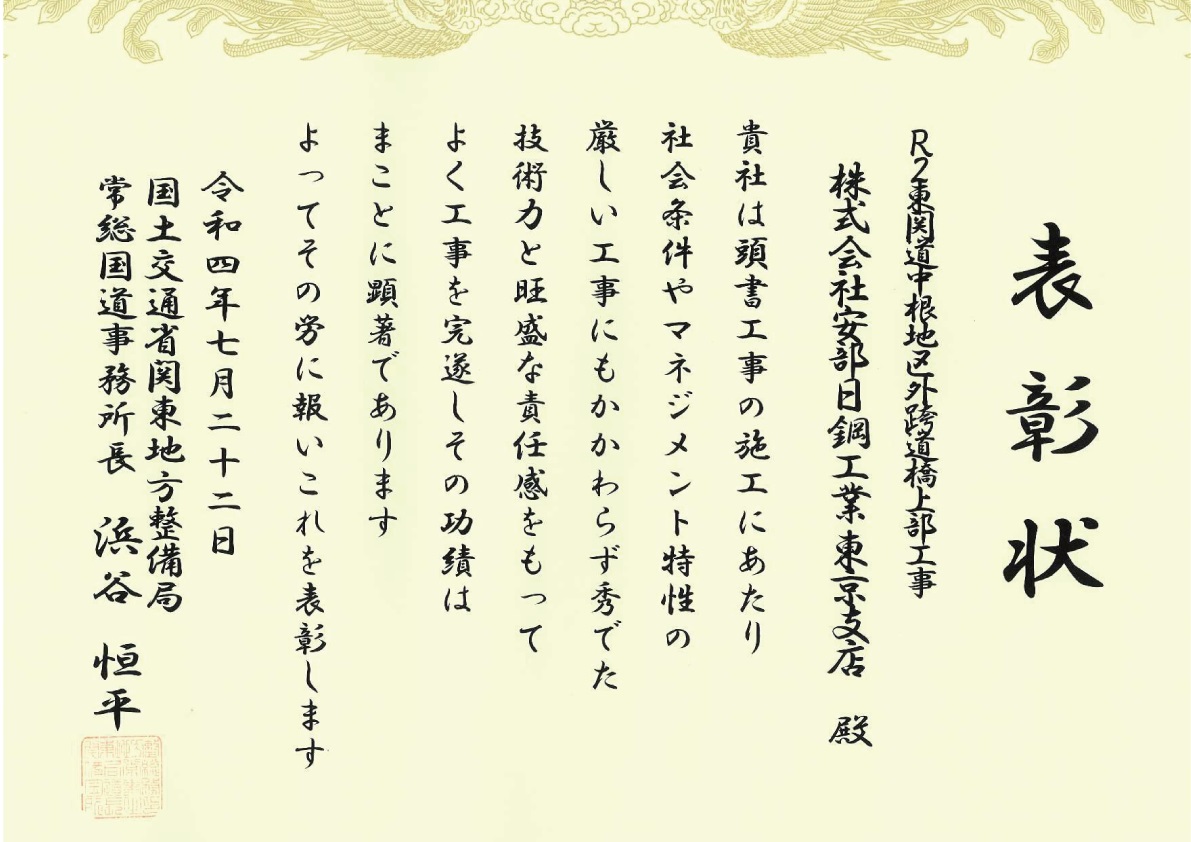 表彰状
R2東関道中根地区外跨道橋上部工事
株式会社安部日鋼工業東京支店 殿
貴社は頭書工事の施工にあたり
社会条件やマネジメント特性の
厳しい工事にもかかわらず秀でた
技術力と旺盛な責任感をもって
よく工事を完遂しその功績は
まことに顕著であります
よってその労に報いこれを表彰します
令和四年七月二十二日
国土交通省関東地方整備局
常総国道事務所長 浜谷 恒平